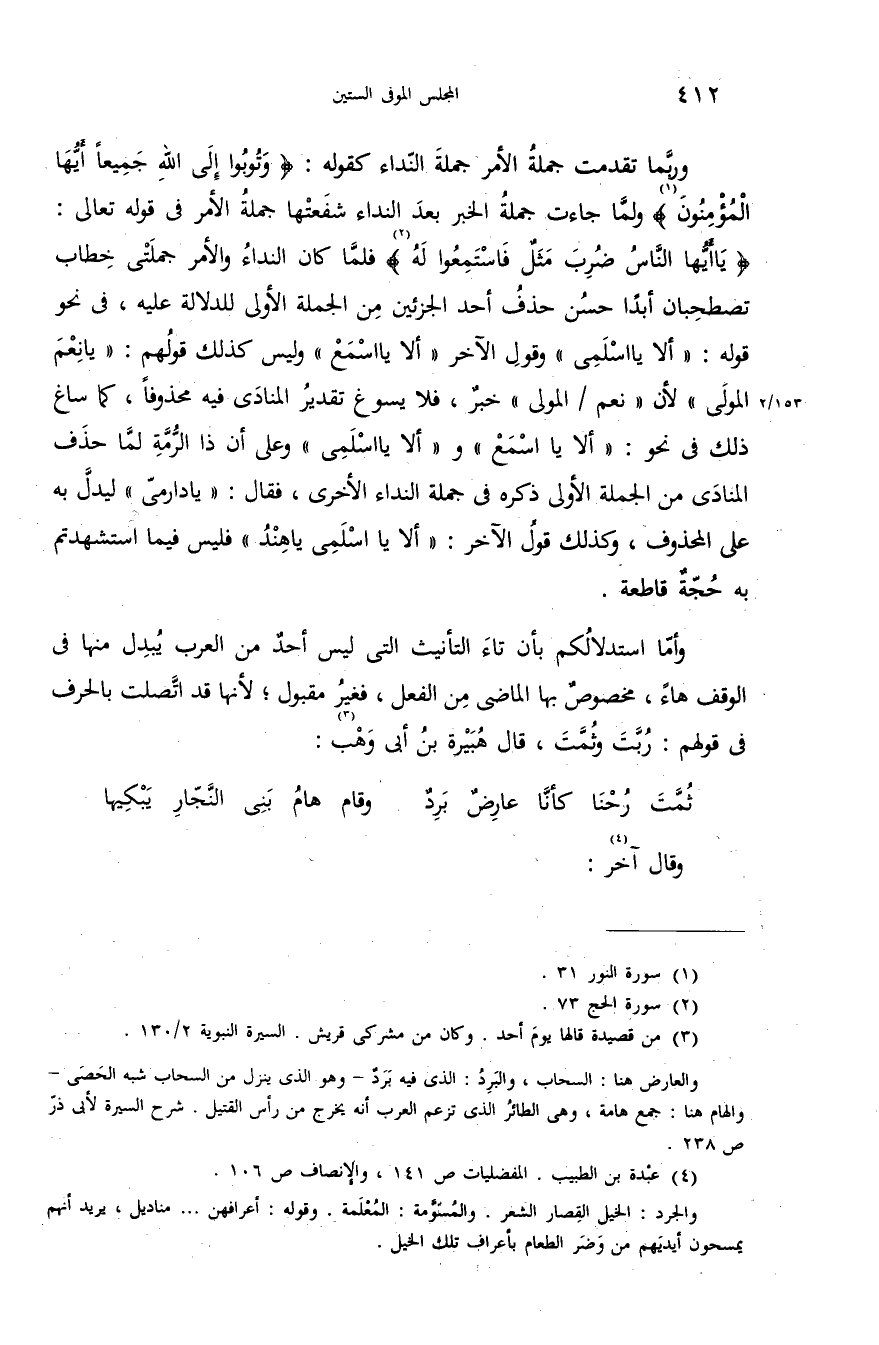 ٤١٢ المجلس الموفى الستين
وربَّما تقدمت جملةُ الأمر جملةَ النّداء كقوله : ﴿ وَتُوبُوا إِلَى اللهِ جَمِيعاً أَيُّهَا
الْمُؤْمِنُونَ (١) ﴾ ولمَّا جاءت جملةُ الخبر بعدَ النداء شفَعتْها جملةُ الأمر فى قوله تعالى :
﴿ يَاأَيُّها النَّاسُ ضُرِبَ مَثَلٌ فَاسْتَمِعُوا لَهُ (٢) ﴾ فلمَّا كان النداءُ والأمر جملَتْى خِطاب
تصطحِبان أبدًا حسُن حذفُ أحد الجزئين مِن الجملة الأولى للدلالة عليه ، فى نحو
قوله : « ألا يااسْلَمِى » وقولِ الآخر « ألا يااسْمَعْ » وليس كذلك قولُهم : « يانِعْمَ
٢/١٥٣ المولَى » لأن « نعم / المولى » خبرٌ ، فلا يسوغ تقديرُ المنادَى فيه محذوفاً ، كما ساغ
ذلك فى نحو : « ألا يا اسْمَعْ » و « ألا يااسْلَمِى » وعلى أن ذا الرُّمَّةِ لمَّا حذَف
المنادَى من الجملة الأولى ذكره فى جملة النداء الأخرى ، فقال : « يادارمىّ » ليدلَّ به
على المحذوف ، وكذلك قولُ الآخر : « ألا يا اسْلَمِى ياهِنْدُ » فليس فيما استشهدتم
به حُجّةٌ قاطعة .
وأمّا استدلالُكم بأن تاءَ التأنيث التى ليس أحدٌ من العرب يُبدِل منها فى
الوقف هاءً ، مخصوصٌ بها الماضى مِن الفعل ، فغيرُ مقبول ؛ لأنها قد اتَّصلت بالحرف
فى قولهم : رُبَّتَ وثُمَّتَ ، قال هُبَيْرة بنُ أبى وَهْب (٣) :
ثُمَّتَ رُحْنَا كأنَّا عارِضٌ بَرِدٌ وقام هامُ بَنِى النَّجّارِ يَبْكِيها
وقال آخر (٤) :
(١) سورة النور ٣١ .
(٢) سورة الحج ٧٣ .
(٣) من قصيدة قالها يومَ أحد . وكان من مشركى قريش . السيرة النبوية ١٣٠/٢ .
والعارض هنا : السحاب ، والبَرِدُ : الذى فيه بَرَدٌ – وهو الذى ينزل من السحاب شبه الحَصَى –
والهام هنا : جمع هامة ، وهى الطائرُ الذى تزعم العرب أنه يخرج من رأس القتيل . شرح السيرة لأبى ذرّ
ص ٢٣٨ .
(٤) عبْدة بن الطبيب . المفضليات ص ١٤١ ، والإنصاف ص ١٠٦ .
والجرد : الخيل القِصار الشعر . والمُسَوَّمة : المُعْلَمة . وقوله : أعرافهن ... مناديل ، يريد أنهم
يمسحون أيديَهم من وَضَر الطعام بأعراف تلك الخيل .